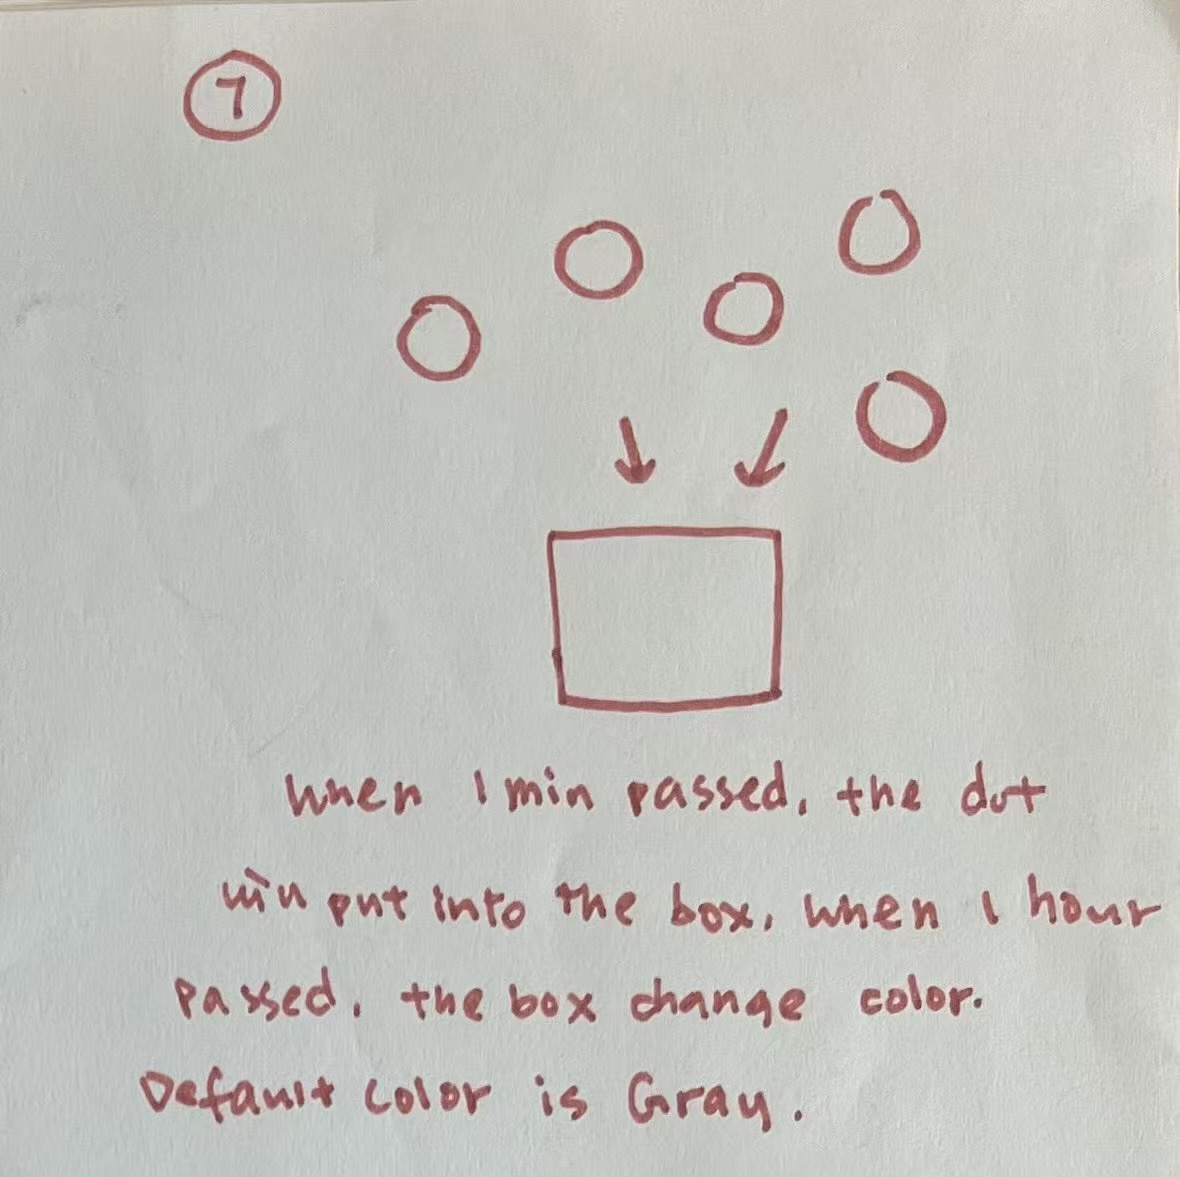 7
When 1 min passed, the dot
will put into the box, when 1 hour
passed, the box change color.
Default color is Gray.